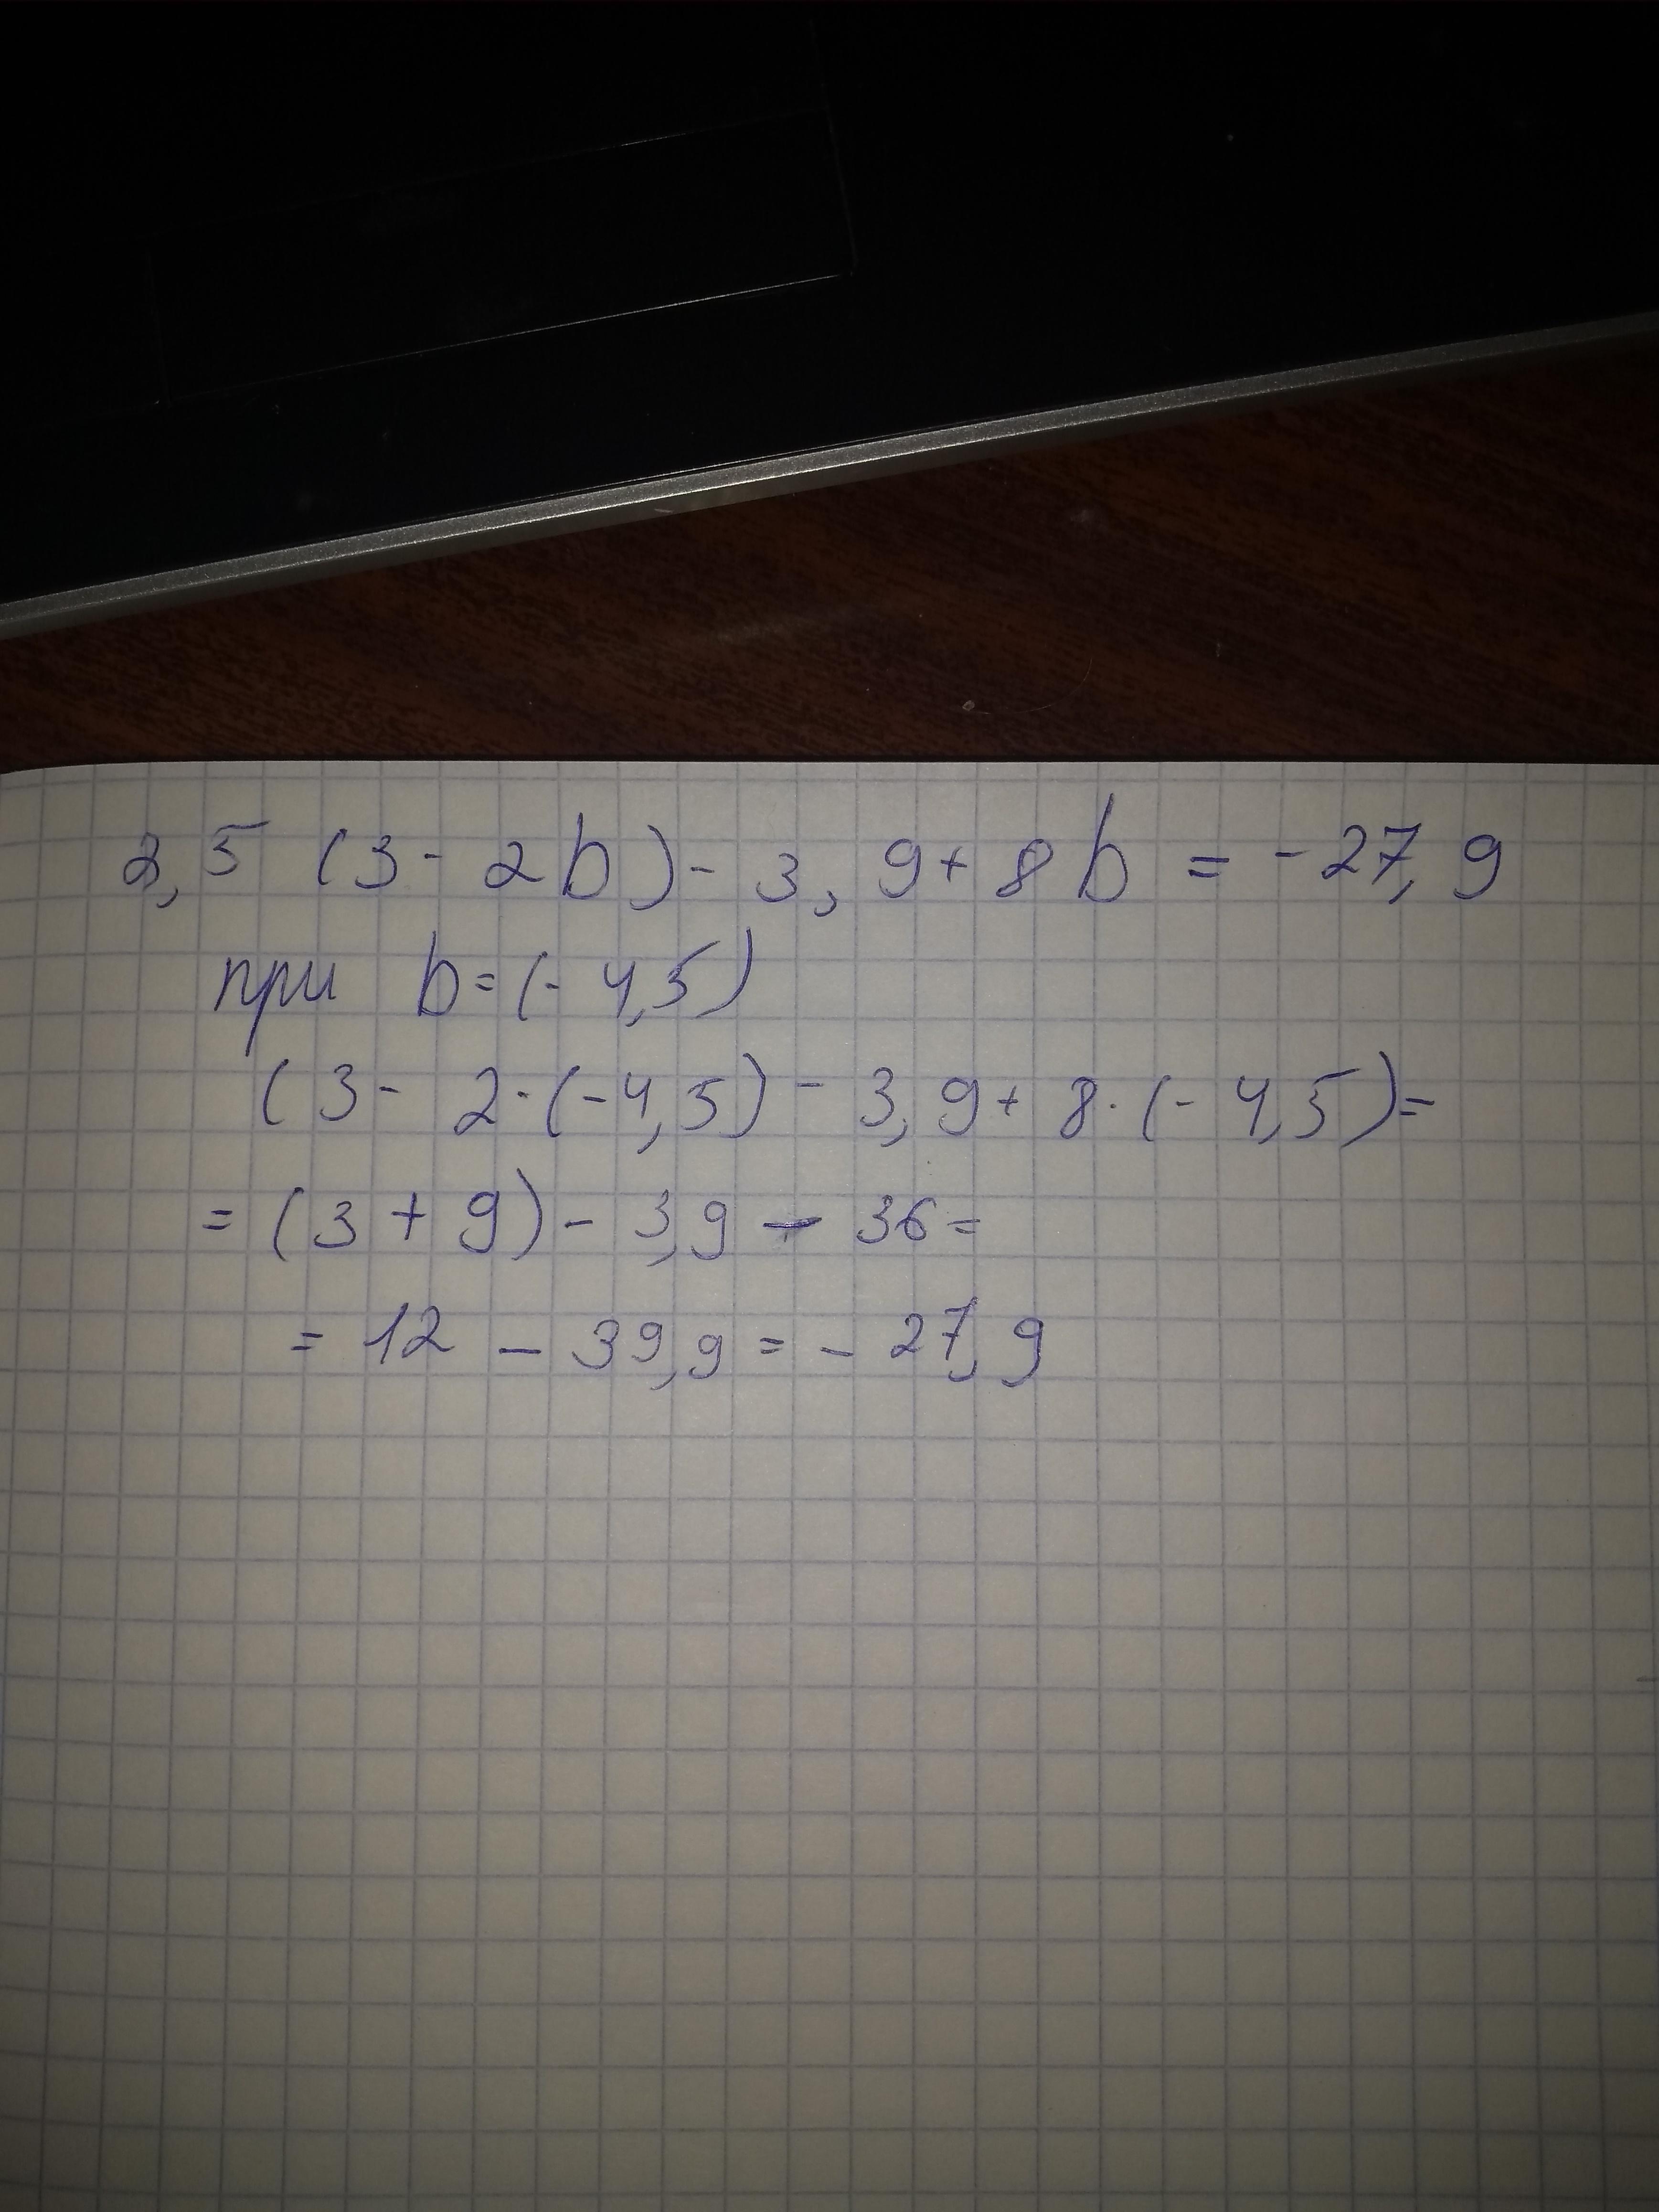 2,5 (3 - 2b) - 3,9 + 8b = -27,9
при b = (-4,5)
(3 - 2·(-4,5) - 3,9 + 8·(-4,5) =
= (3 + 9) - 3,9 - 36 =
= 12 - 39,9 = -27,9